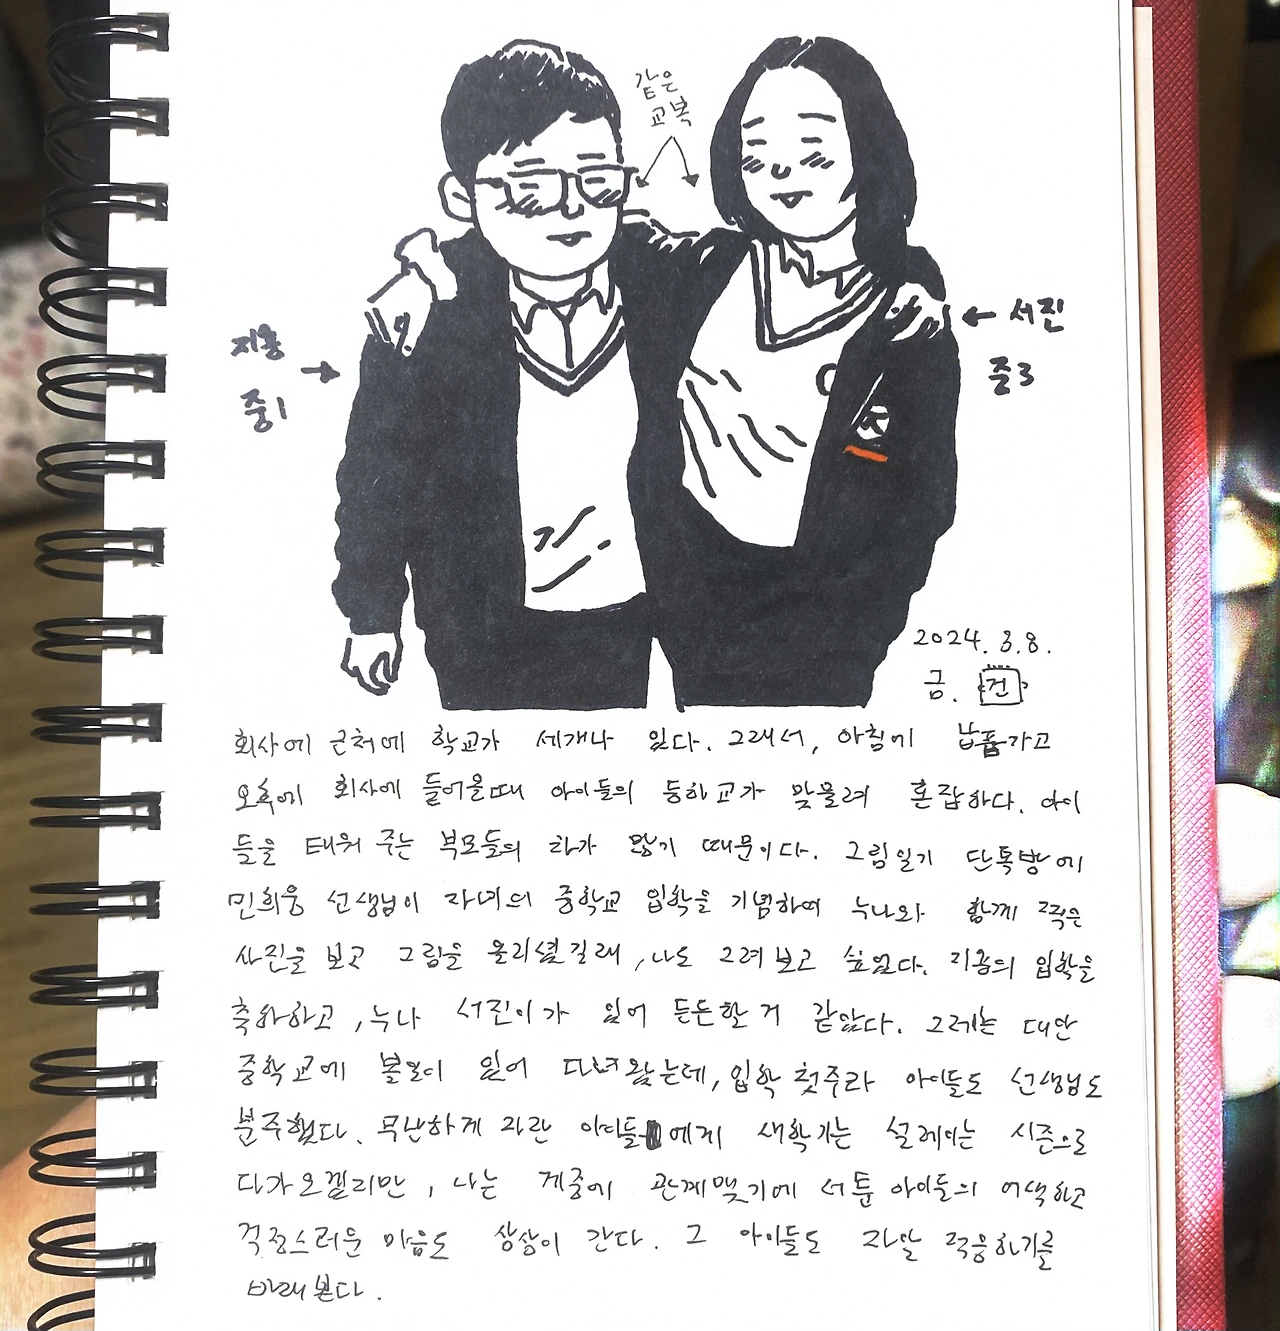 같은
교복
지웅
중1
서진
중3
2024. 3. 8.
금. 건
회사에 근처에 학교가 세개나 있다. 그래서, 아침에 납품가고
오후에 회사에 들어올때 아이들의 등하교가 맞물려 혼잡하다. 아이
들을 태워 주는 부모들의 차가 많기 때문이다. 그림일기 단톡방에
민희웅 선생님이 자녀의 중학교 입학을 기념하여 누나와 함께 찍은
사진을 보고 그림을 올리셨길래, 나도 그려보고 싶었다. 지웅의 입학을
축하하고, 누나 서진이가 있어 든든할 거 같았다. 그제는 대안
중학교에 볼일이 있어 다녀왔는데, 입학 첫주라 아이들도 선생님도
분주했다. 무난하게 자란 아이들에게 새학기는 설레이는 시즌으로
다가오겠지만, 나는 개중에 관계맺기에 서툰 아이들의 어색하고
걱정스러운 마음도 상상이 간다. 그 아이들도 잘 적응하기를
바래본다.